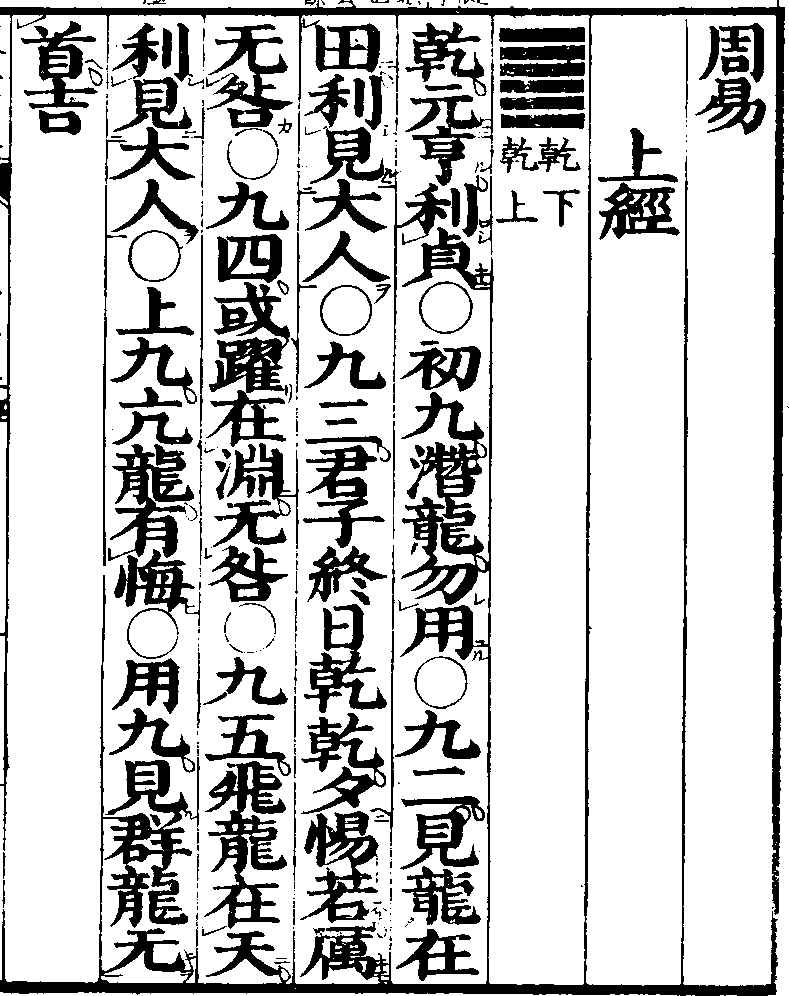 周易
上經
乾下
乾上
乾元亨利貞○初九潛龍勿用○九二見龍在
田利見大人○九三君子終日乾乾夕惕若厲
无咎○九四或躍在淵无咎○九五飛龍在天
利見大人○上九亢龍有悔○用九見群龍无
首吉